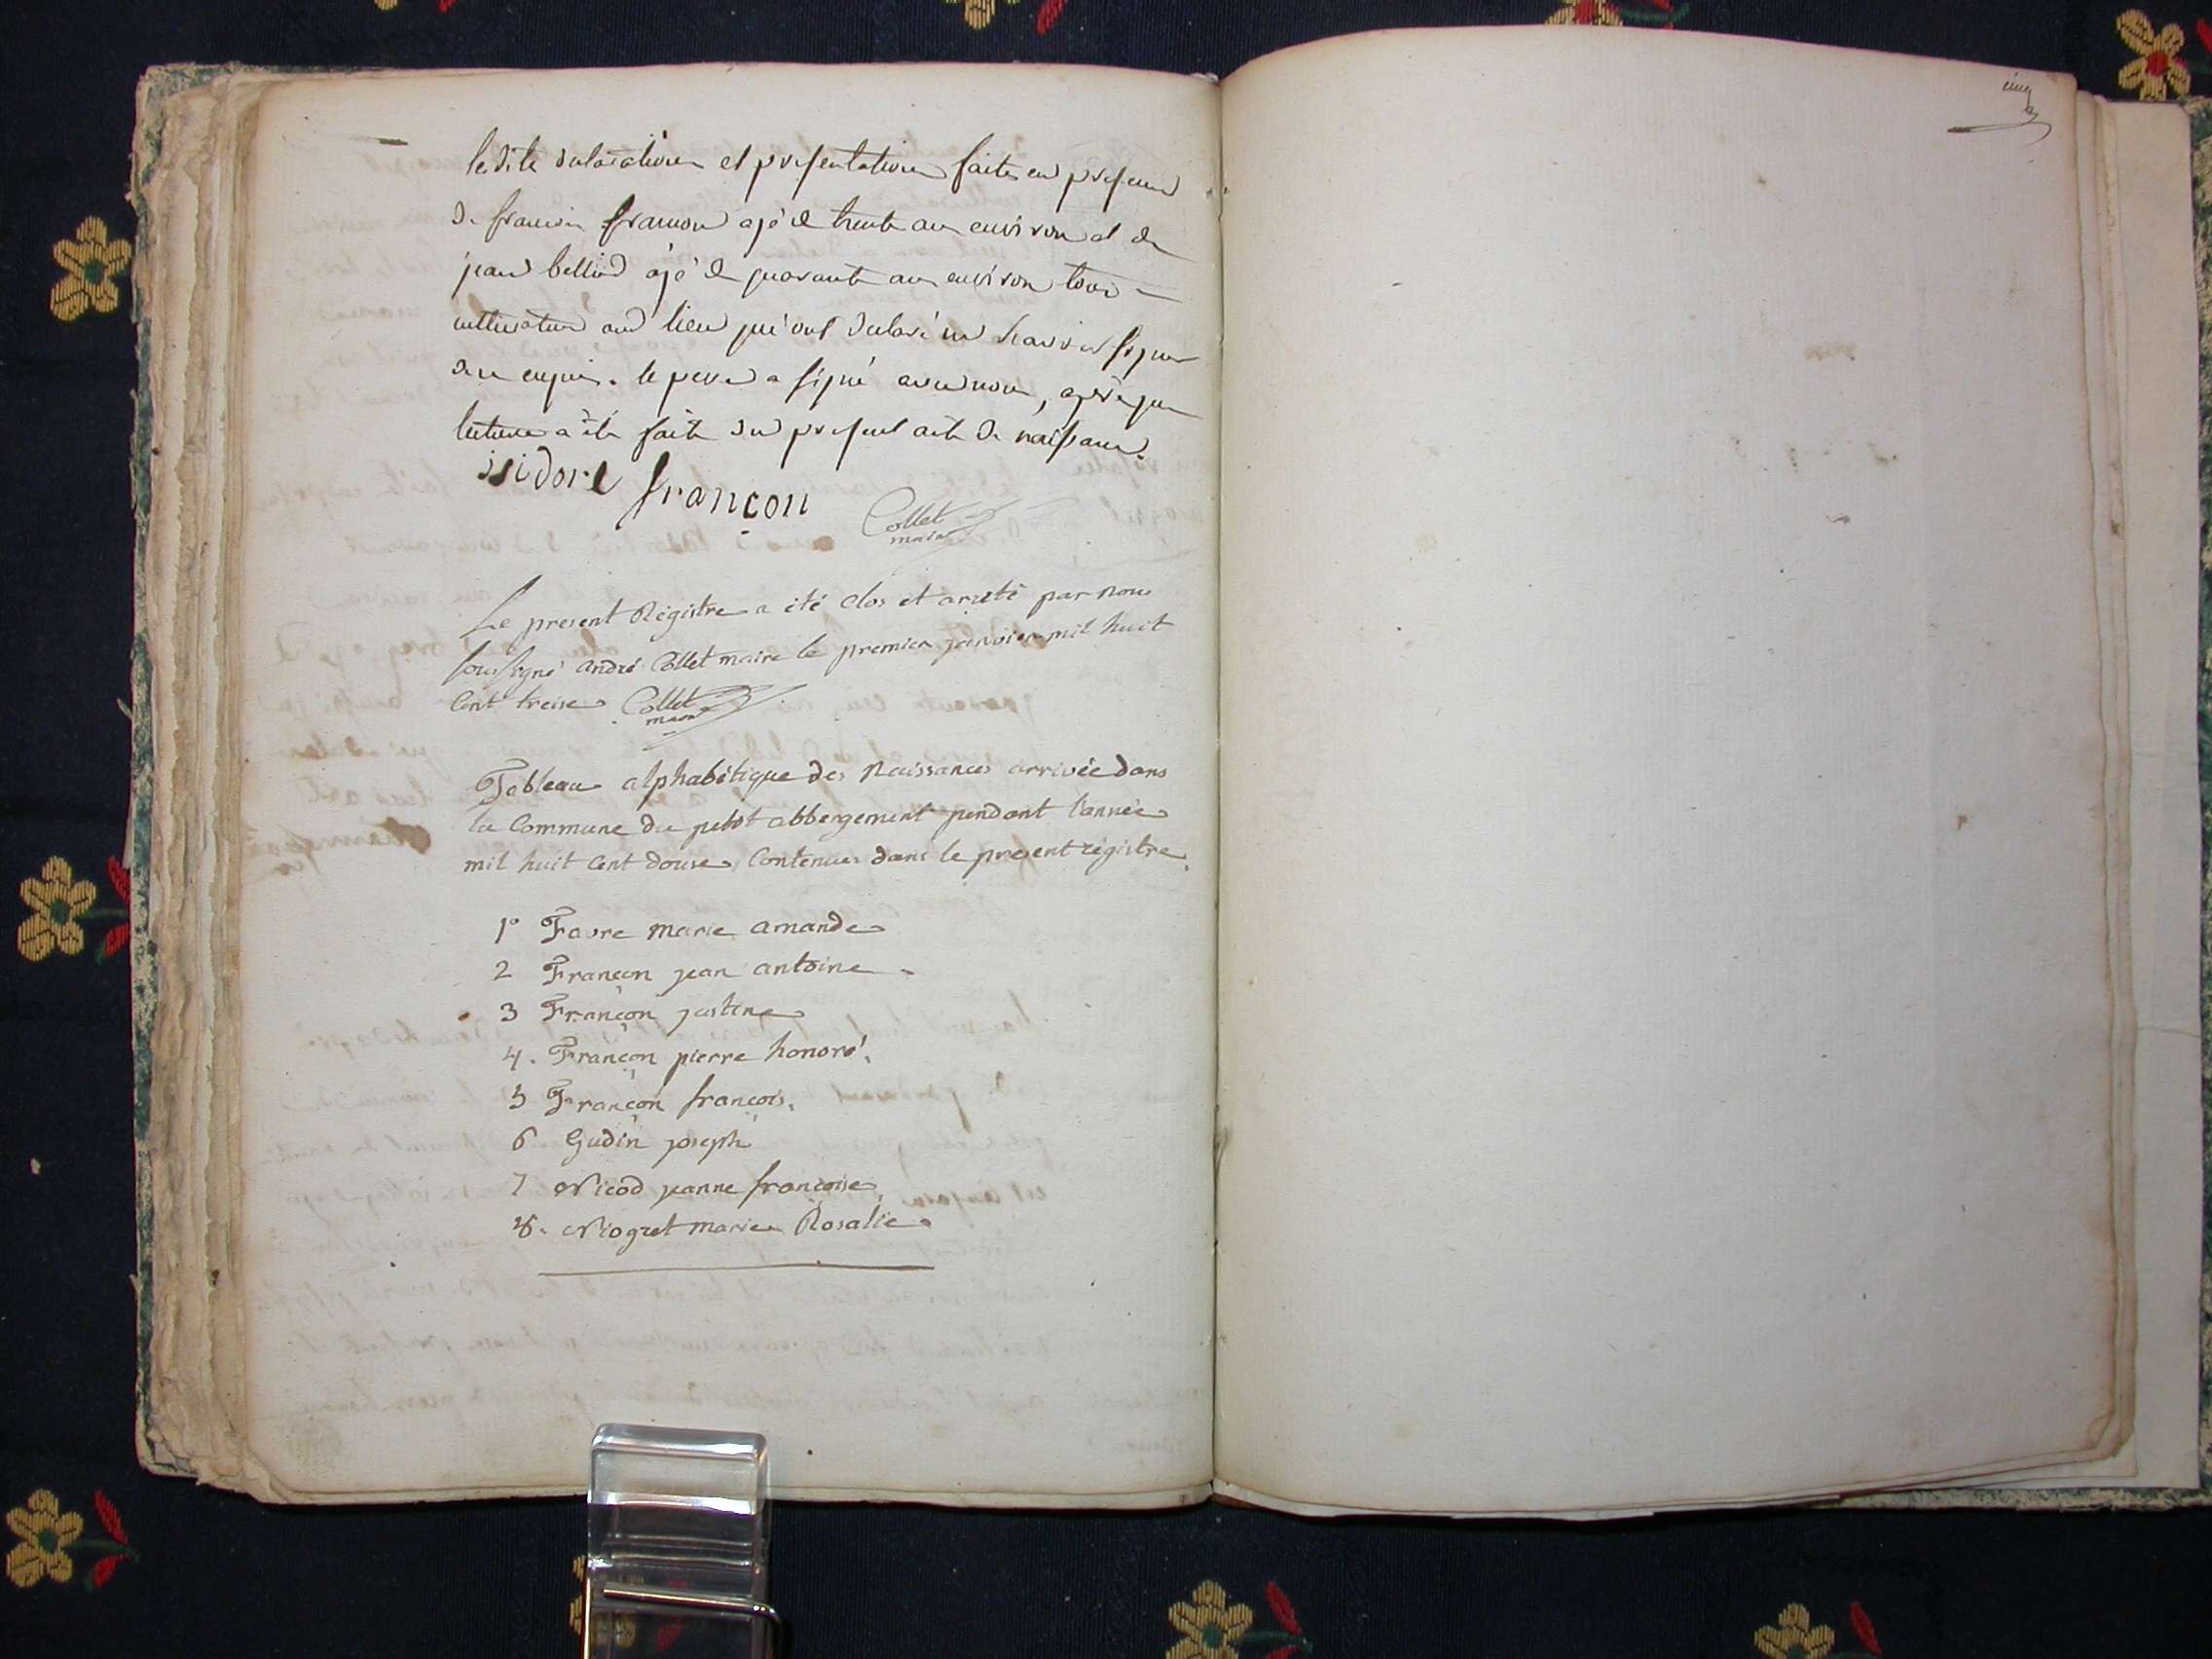 lesdite declaration et presentation faites en presence
de francois francon agé de trente ans environ et de
jean belliod agé de quarante ans environ tous
cultivateur aud lieu qui ont declaré ne scavoir signer
de ce enquis. le pere a signé avec nous, apres que
lecture a été faite du present acte de naissance.
isidore françon
Collet
maire
Le present Régistre a été clos et areté par nous
soussigné andré Collet maire le premier janvier mil huit
Cent treise Collet
maire
Tableau alphabétique des Naissances arrivée dans
la Commune du petit abbergement pendant l'année
mil huit Cent douse, Contenues dans le present régistre.
1° Favre marie amande
2 Françon jean antoine
3 Françon justine
4. Françon pierre honoré.
5 Françon francois.
6 Gudin joseph
7 Nicod jeanne françoise
8. Niogret marie Rosalie
cinq